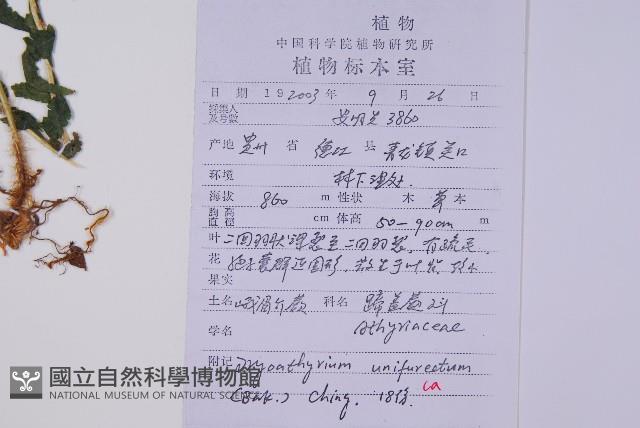 植物
中国科学院植物研究所
植物标本室
日期 19 2003 年 9 月 26 日
采集人及号数 3860
产地 贵州 省 德江 县
环境 林下湿处
海拔 860 m 性状 木 草 本
胸高直径 cm 体高 50-90cm m
叶 二回羽状深裂至二回羽裂,
花
果实
土名 峨眉介蕨 科名 蹄盖蕨科
学名 Athyriaceae
附记 Dryoathyrium unifurcatum
(Bak.) Ching. 18份 ca
國立自然科學博物館
NATIONAL MUSEUM OF NATURAL SCIENCE